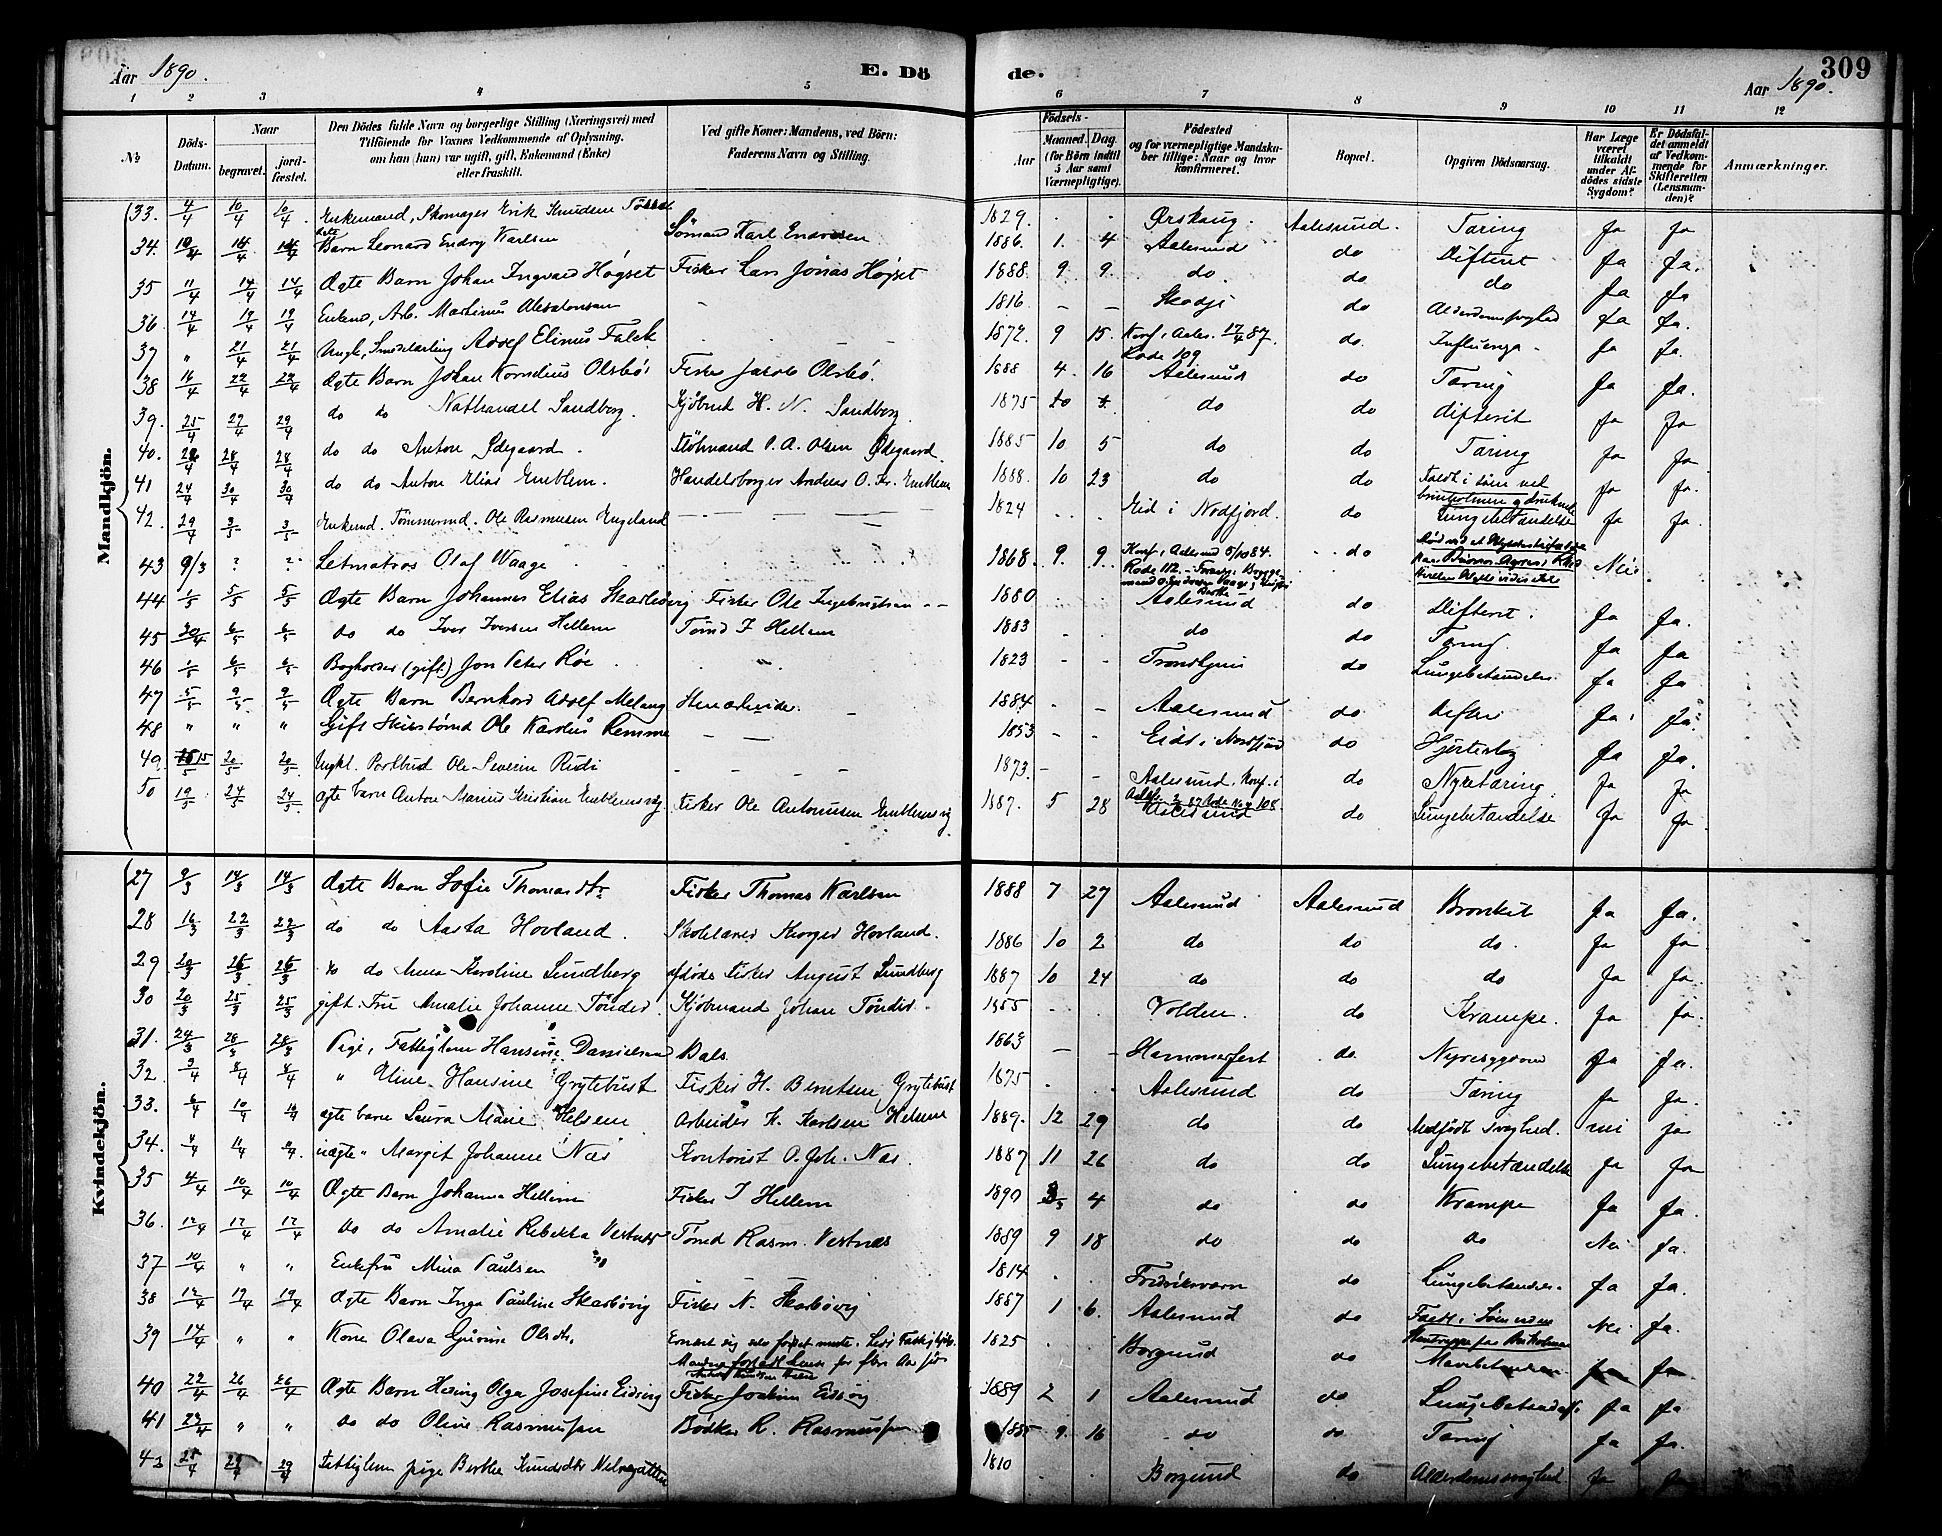 Aar 1890. E. Dö de. Aar 1890. 309
1 2 3 4 5 6 7 8 9 10 11 12
№ Döds-Datum. Naar begravet. jord-fæstet. Den Dödes fulde Navn og borgerlige Stilling (Næringsvei) med Tilföiende for Voxnes Vedkommende af Oplysning, om han (hun) var ugift, gift, Enkemand (Enke) eller fraskilt. Ved gifte Koner: Mandens, ved Börn: Faderens Navn og Stilling. Födsels- Aar Maaned. Dag. (for Börn indtil 5 Aar samt Værnepligtige). Födested og for værnepligtige Mandsku-ber tillige: Naar og hvor konfirmeret. Bopæl. Opgiven Dödsaarsag. Har Læge været tilkaldt under Af-dödes sidste Sygdom? Er Dödsfal-det anmeldt af Vedkom-mende for Skifteretten (Lensman-den)? Anmærkninger.
Mandkjön.
33. 4/4 10/4 10/4 Enkemand, Skomager Erik Knudsen 1829 Ørskaug. Aalesund. Tæring ja ja
34. 10/4 14/4 14/4 Barn Leonard Endry Karlsen Sömand Karl Endresen 1886. 1. 4 Aalesund do Difterit ja ja.
35 11/4 14/4 14/4 Ægte Barn Johan Ingvard Høgset Fisker Lars Jonas Højset 1888 9. 9. do. do do ja ja
36. 14/4 19/4 19/4 Enkemd, Arb. Martinus Absalonsen 1816 Skodje do Alderdomssvaghed ja ja.
37 " 21/4 21/4 Ungk, Smedelærling Adolf Elinus Falck 1872 9 15. Konf. i Aales. 17/4 87. Rode 109 do. Influenza ja ja.
38 16/4 22/4 22/4 Ægte Barn Johan Kornelius Olsbö Fisker Jacob Olsbö. 1888 4. 16 Aalesund do Tæring ja ja.
39. 25/4 29/4 29/4 do do Nathanael Sandborg. Kjöbmd H. N. Sandborg 1875 do do difterit ja ja
40. 28/4 28/4 do do Anton Ødegaard. P. A. Olsen Ødegaard. 1885 10 5 do do Tæring ja ja
41 24/4 30/4 30/4 do do Anton Elias Emblem. Handelsborger Andreas O. Kr. Emblem 1888. 10 23 do do Faldt i söen ved og druknede ja ja.
42. 29/4 3/5 3/5 Enkemd. Tömmermd. Ole Rasmusen Engeland 1824 Eid i Nordfjord. do Lungebetændelse ja ja.
43 9/3 ? ? Letmatros Olaf Waage 1868 9 9. Konf. i Aalesund 5/10 84. Rode 112. do Nei
44 1/5 5/5 5/5 Ægte Barn Johannes Elias Skarbövig Fisker Ole Ingebrigtsen 1880 Aalesund do Difterit. ja ja.
45 30/4 6/5 6/5 do do Iver Iversen Hellem Tömd I Hellem 1883 do do Tæring. ja ja
46 1/5 6/5 6/5 Bogholder (gift) Jon Peter Röe 1823 Trondhjem do Lungebetændelse. ja ja
47 5/5 9/5 9/5 Ægte Barn Bernhard Adolf Melang Stenarbeider. 1884 Aalesund do Difter ja ja
48 " " " Gift Skibstömd Ole Karolus Remme 1853 Eid i Nordfjord do Hjertesyg ja ja.
49. 15/5 20/5 20/5 Ungkl. Postbud Ole Severin Rudi 1873. Aalesund, Konf. i do Nyretæring. ja ja
50 19/5 24/5 24/5 ægte barn Anton Marius Kristian Emblemsvåg Fisker Ole Antonusen Emblemsvig 1887. 5 28 Aalesund do Lungebetændelse ja ja.
Kvindekjön.
27 9/3 14/3 14/3 Ægte Barn Sofie Thomasdtr Fisker Thomas Karlsen 1888 7 27 Aalesund Aalesund Bronkit ja ja.
28 16/3 22/3 22/3 do do Aasta Hovland. Skolelærer Hovland. 1886 10 2 do do do. ja ja
29 20/3 25/3 25/3 do do Anna Karoline Sundberg afdöde Fisker August Sundberg 1887 10 24 do do do ja ja.
30 20/3 25/3 25/3 gift. Fru Amalie Johanne Tönder. Kjöbmand Johan Tönder. 1855 Volden. do Krampe. ja ja.
31. 24/3 28/3 28/3 Pige, Fattiglem Hansine Danielsen Bals 1863 Hammerfest do. Nyresygdom ja ja.
32. 3/4 8/4 8/4 " Eline Hansine Grytebust Fisker H. Berntsen Grytebust 1875 Aalesund do Tæring ja ja.
33. 6/4 10/4 10/4 ægte barn Laura Marie Helsem Arbeider K. Karlsen Helsem 1889. 12 29 do do Medfødt svaghed. nei ja
34. 4/4 11/4 11/4 uægte " Margit Johanne Næs Kontorist O. Joh. Næs. 1887 11 26 do do Lungebetændelse ja ja
35 4/4 10/4 10/4 Ægte Barn Johanna Hellem Fisker I Hellem 1890 3 4 do do Krampe ja ja.
36. 12/4 17/4 17/4 do do Amalie Rebekka Vestnæs Tömd Rasm. Vestnæs 1889 9 18 do do do Nei ja.
37 10/4 " " Enkefru Mina Paulsen 1814 Fredriksværn do Lungebetændelse. ja ja.
38 12/4 19/4 19/4 Ægte Barn Inga Pauline Skarbövig Fisker N. Skarbövig 1887 1 6. Aalesund do Faldt i Söen Nei ja.
39 14/4 " " Kone Olava Gurine Olsdtr. 1825 Borgund do ja ja
40 22/4 26/4 26/4 Ægte Barn Olga Josefine Eidsvig Fisker Joakim Eidsvig 1889 2 1 Aalesund do Lungebetændelse ja ja
41 23/4 " " do do Oline Rasmussen Bödker R. Rasmussen 1885 9. 16 do do Tæring ja ja.
43 25/4 29/4 29/4 Fattiglem pige Berthe Knudsdtr 1810 Borgund do Alderdomssvaghed ja ja.